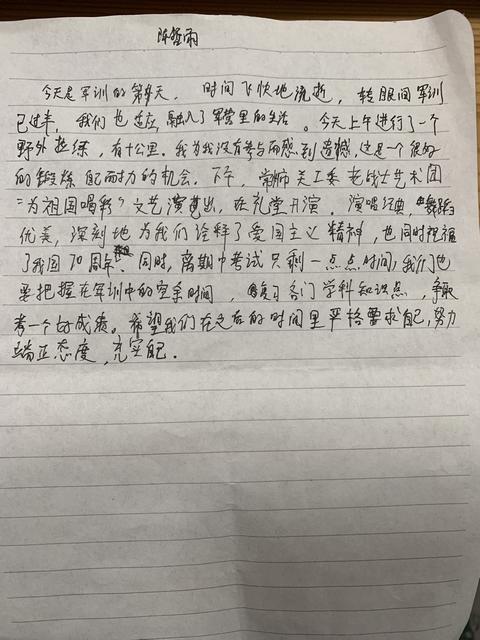 陈 雨
今天是军训的第 天，时间飞快地流逝，转眼间军训
已过半，我们也适应，融入了军营里的生活。今天上午进行了一个
野外拉练，有十公里。我为我没有参与而感到遗憾，这是一个很好
的锻炼 耐力的机会。下午，常师关工委老战士艺术团
“为祖国喝彩”文艺演出，在礼堂开演。演唱经典，舞蹈
优美，深刻地为我们诠释了爱国主义精神，也同时祝福
了我国70周年。同时，离期中考试只剩一点点时间，我们也
要把握在军训中的空余时间，复习各门学科知识点，争取
考一个好成绩。希望我们在之后的时间里严格要求自己，努力
端正态度，充实自己。